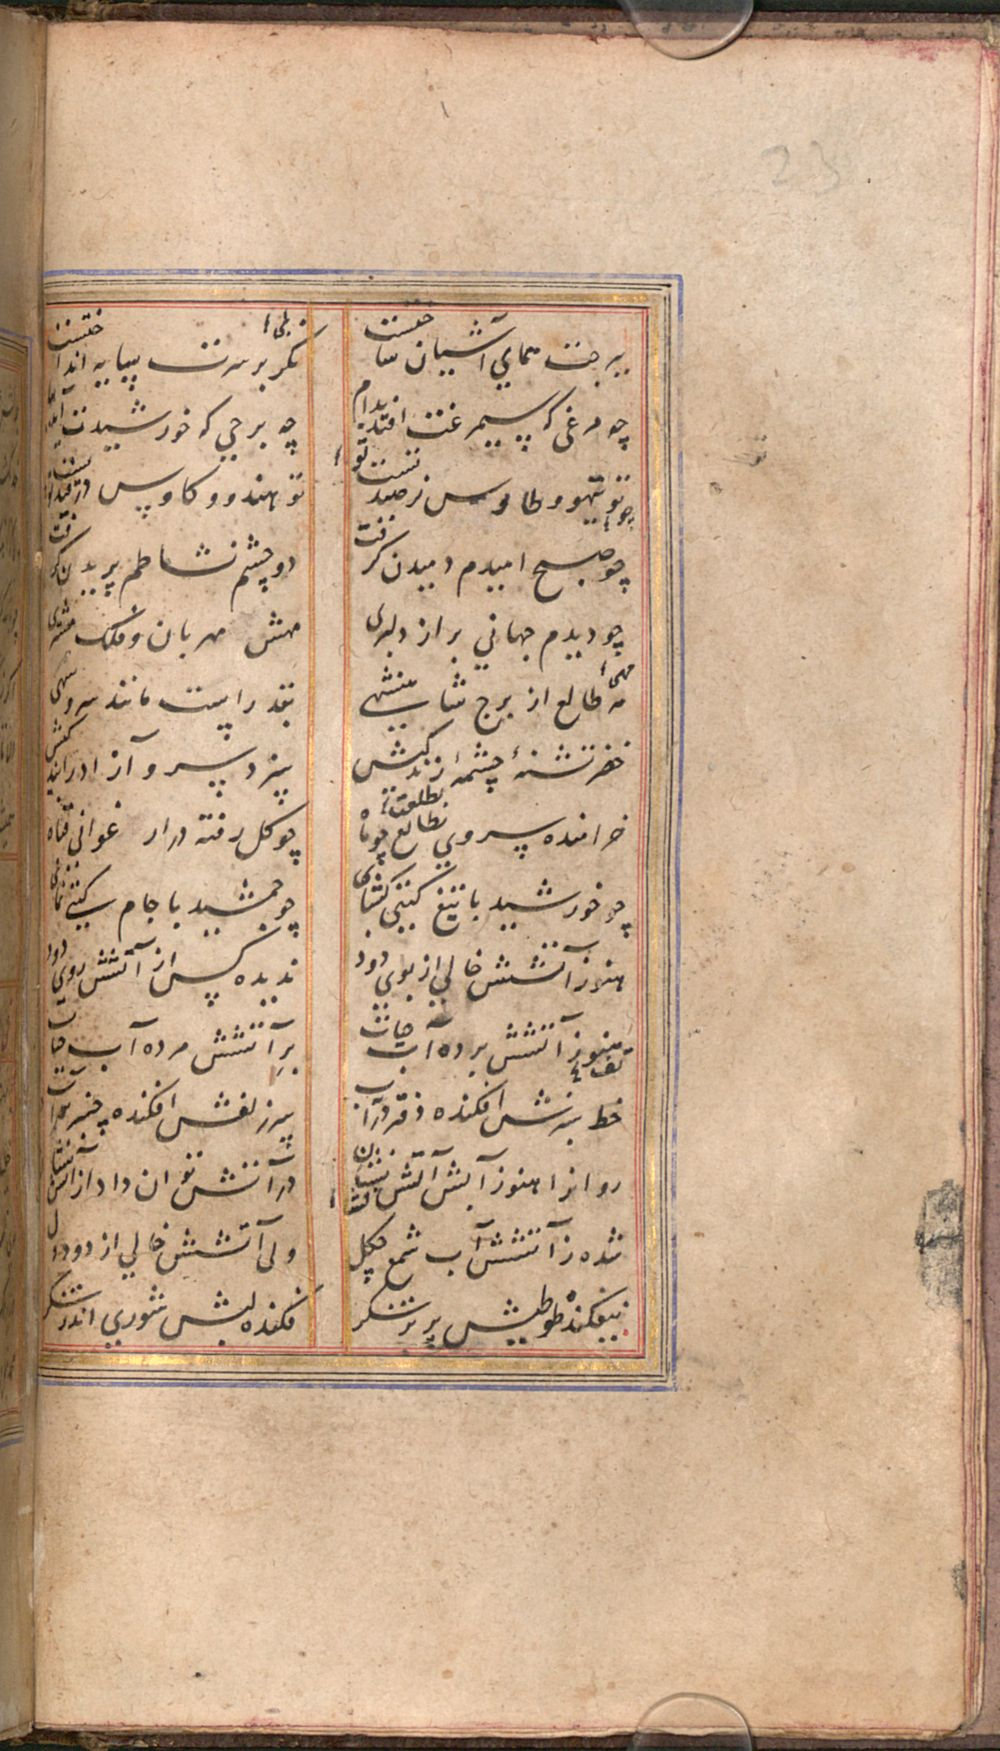 ببرجت همای آشیان ساختست نگر بر سرت سایه انداختست
چه مرغی که سیمرغت افتد بدام چه برجی که خورشیدت آید
تو تیهو و طاوس نر صید تست تو هندو و کاوس در قید تست
چو صبح امیدم دمیدن گرفت دو چشم نشاطم پریدن گرفت
چو دیدم جهانی پر از دلبری مهش مهربان و فلک مشتری
مه طالع از برج شاهنشهی بقد راست مانند سرو سهی
خضر تشنهٔ چشمهٔ زندگیش سرو آزاد
خرامنده سروی بطالع چو ماه چو گل رفته در ارغوانی قباه
چو خورشید با تیغ گیتی گشای چو جمشید با جام گیتی نمای
هنوز آتشش خالی از بوی دود ندیده کس از آتش روی دود
هنوز آتشش برده آب حیات بر آتشش مرده آب حیات
خط سبزش افکنده دفتر در آب سر زلفش افکنده چنبر
روانرا هنوز آبش آتش نشان در آتش توان داد از آتش نشان
شده ز آتشش آب شمع چگل ولی آتشش خالی از دود دل
بیفکنده طوطیش پر بر شکر فکنده لبش شوری اندر شکر
23